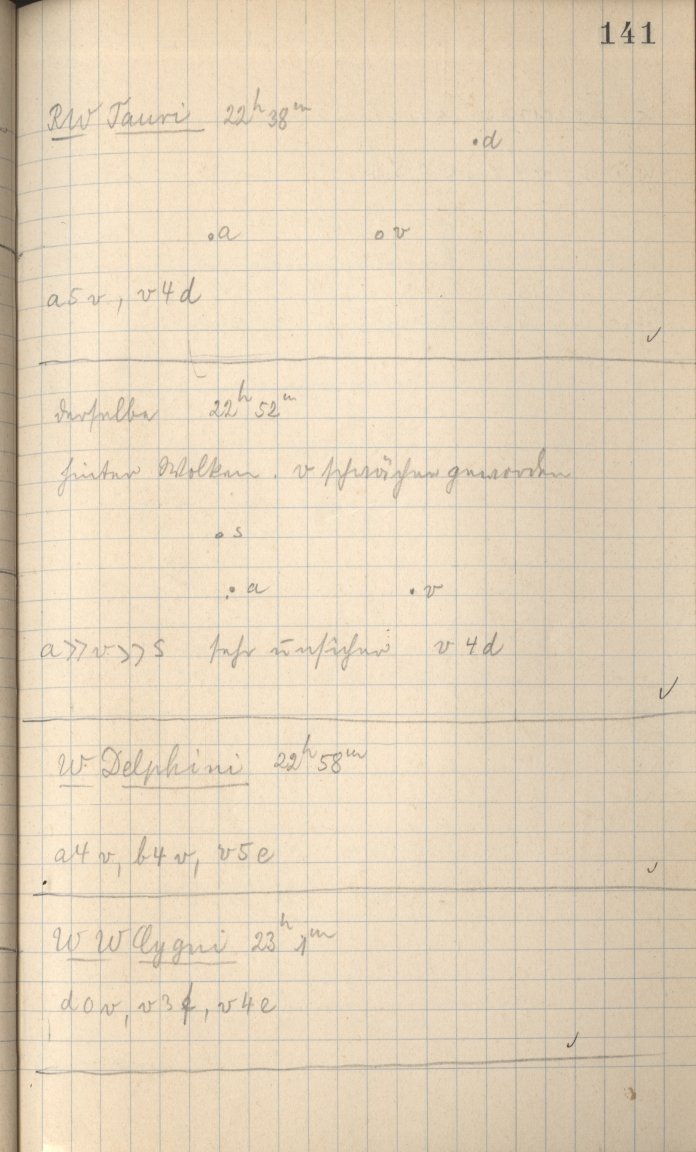 141
RW Tauri 22h 38m
d
a v
a5v, v4d
derselbe 22h 52m
hinter Wolken. v schwächer geworden
s
a v
a≫v≫s sehr unsicher v4d
W Delphini 22h 58m
a4v, b4v, v5e
WW Cygni 23h 1m
d0v, v3f, v4e